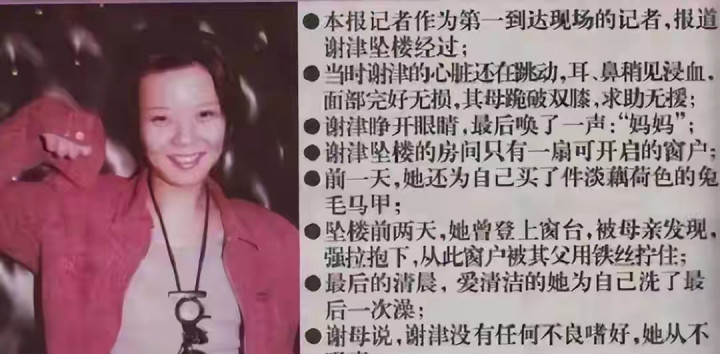 ●本报记者作为第一到达现场的记者,报道
谢津坠楼经过;
●当时谢津的心脏还在跳动,耳、鼻稍见浸血,
面部完好无损,其母跪破双膝,求助无援;
●谢津睁开眼睛,最后唤了一声:“妈妈”;
●谢津坠楼的房间只有一扇可开启的窗户;
●前一天,她还为自己买了件淡藕荷色的兔
毛马甲;
●坠楼前两天,她曾登上窗台,被母亲发现,
强拉抱下,从此窗户被其父用铁丝拧住;
●最后的清晨,爱清洁的她为自己洗了最
后一次澡;
●谢母说,谢津没有任何不良嗜好,她从不